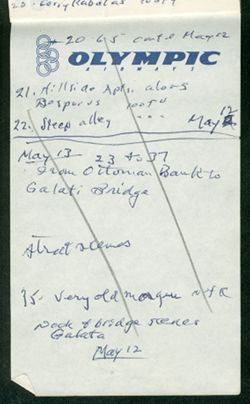 20-65
OLYMPIC
AIRWAYS
21. Hillside Apts. along
Bosporus
22. Steep alley " " "
May 12
May 13 23 to 37
From Ottoman Bank to
Galati Bridge
Strat scenes
35- very old mosque
Dock & bridge scenes
Galata
May 12